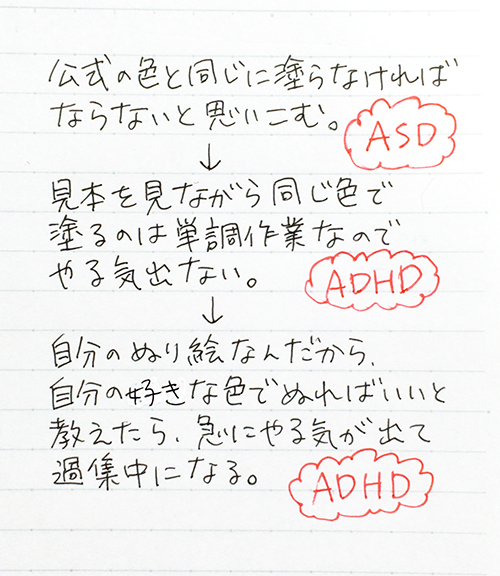 公式の色と同じに塗らなければ
ならないと思いこむ。
ASD
↓
見本を見ながら同じ色で
塗るのは単調作業なので
やる気出ない。
ADHD
↓
自分のぬり絵なんだから、
自分の好きな色でぬればいいと
教えたら、急にやる気が出て
過集中になる。
ADHD